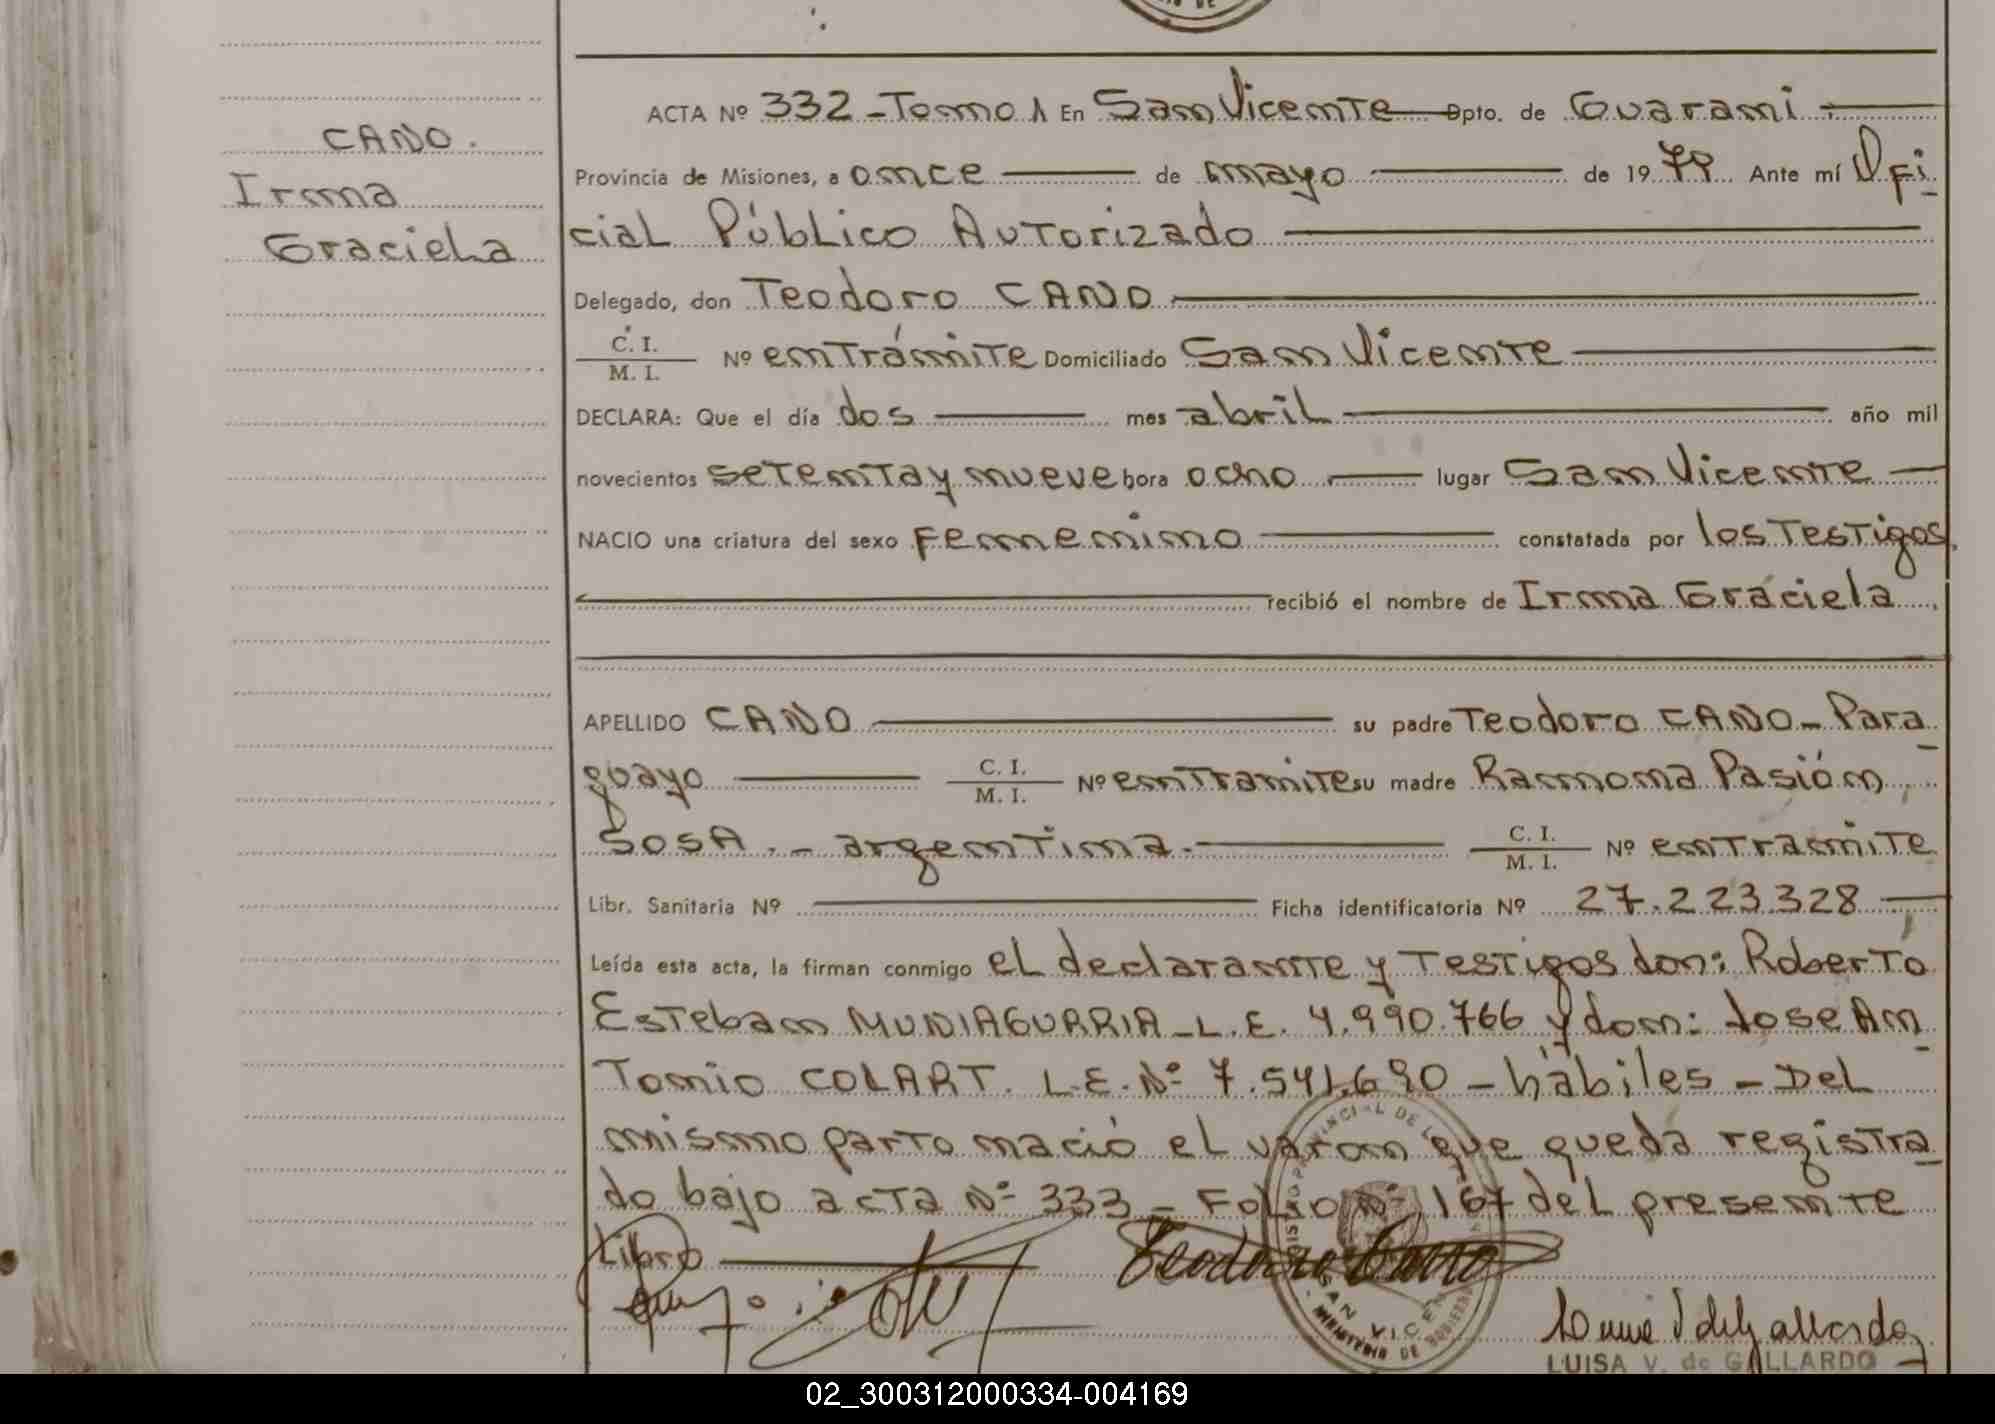 CANO.
Irma
Graciela
ACTA Nº 332 - Tomo 1 En San Vicente Dpto. de Guarani
Provincia de Misiones, a once de mayo de 1979 Ante mí Ofi
cial Público Autorizado
Delegado, don Teodoro CANO
C. I.
M. I. Nº en trámite Domiciliado San Vicente
DECLARA: Que el día dos mes abril año mil
novecientos setenta y nueve hora ocho lugar San Vicente
NACIO una criatura del sexo Femenino constatada por los Testigos
recibió el nombre de Irma Graciela
APELLIDO CANO su padre Teodoro CANO - Para
guayo C. I. M. I. Nº en tramite su madre Ramona Pasión
SOSA. - argentina. C. I. M. I. Nº en tramite
Libr. Sanitaria Nº Ficha identificatoria Nº 27.223.328
Leída esta acta, la firman conmigo el declarante y Testigos don: Roberto
Esteban MUNIAGURRIA - L.E. 4.990.766 y don: Jose An
Tonio COLART. L.E. Nº 7.541.690 - hábiles - Del
mismo parto nació el varon que queda registra
do bajo acta Nº 333 - Folio Nº 167 del presente
Libro
Teodoro Cano
SAN VICENTE
MINISTERIO DE GOBIERNO
LUISA V. de GALLARDO
02_300312000334-004169